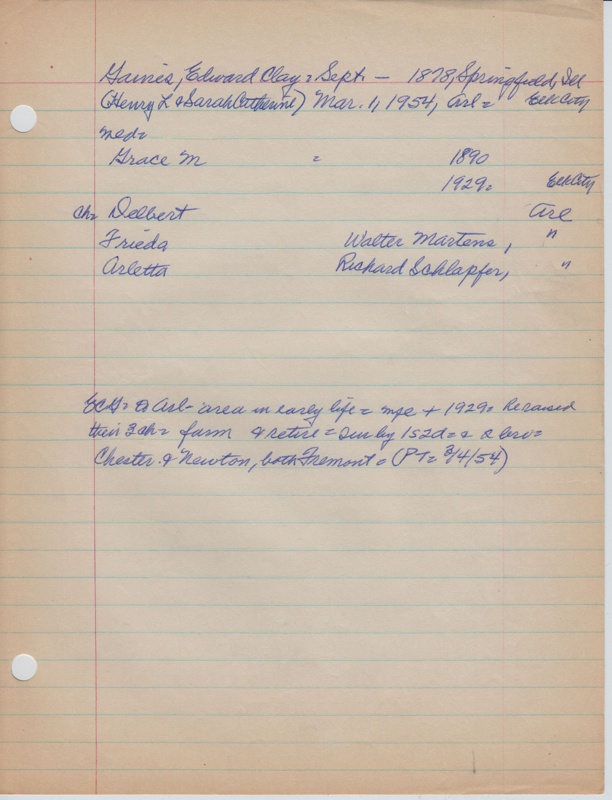 Gaines, Edward Clay = Sept. — 1878, Springfield, Ill
(Henry L & Sarah Catherine) Mar. 1, 1954, Arl = Elk City
med=
Grace M = 1890
1929= Elk City
ch= Delbert Arl
Frieda Walter Martens, "
Arletta Richard Schlapfer, "
ECG= to Arl- area in early life = mge + 1929= He raised
their 3 ch= farm & retire = sur by 1s2d= & 2 bro=
Chester & Newton, both Fremont = (PT= 3/4/54)